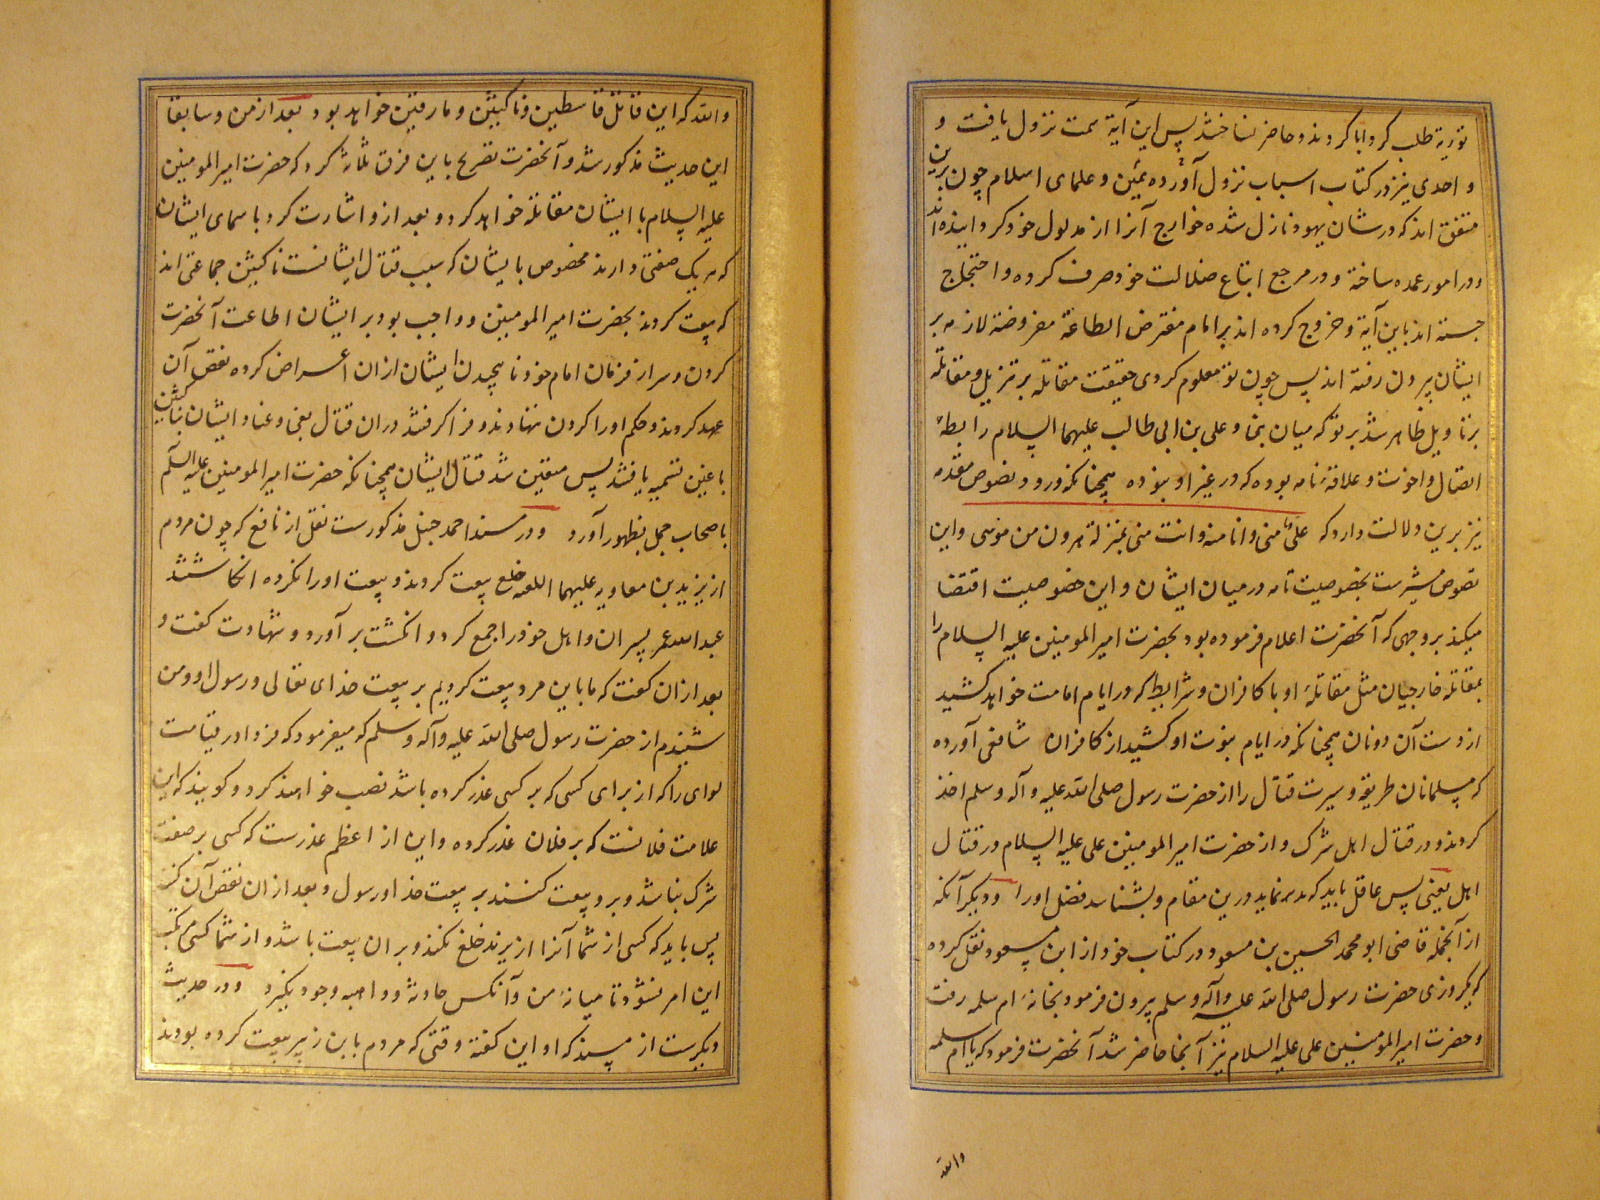 توریة طلب کرد ابا کردند و حاضر نساختند پس این آیة سمت نزول یافت و
واحدی نیز در کتاب اسباب نزول آورده و علمای اسلام چون برین
متفق اند که در شان یهود نازل شده خوارج آنرا از مدلول خود گردانیده اند
و در امور عمده ساخته و در مرجع اتباع ضلالت خود صرف کرده و احتجاج
جسته اند باین آیة و خروج کرده اند بر امام مفترض الطاعة مفروضه لازمه بر
ایشان بیرون رفته اند پس چون تو معلوم کردی حقیقت مقاتله بر تنزیل و مقاتلة
بر تاویل ظاهر شد بر تو که میان و علی بن ابی طالب علیهما السلام رابطهٔ
اتصال و اخوت و علاقهٔ تامه بوده که در غیر او نبوده همچنانکه ورود نصوص متقدمه
نیز برین دلالت دارد که علی منی و انا منه و انت منی بمنزلة هرون من موسی و این
نصوص مشیرست بخصوصیت تامه در میان ایشان و این خصوصیت اقتضا
میکند بر وجهی که آنحضرت اعلام فرموده بود بحضرت امیر المومنین علیه السلام را
بمقاتلهٔ خارجیان مثل مقاتلهٔ او با کافران و شرایط که در ایام امامت خواهد کشید
از دست آن دونان همچنانکه در ایام نبوت او کشید از کافران شافعی آورده
که مسلمانان طریقه و سیرت قتال را از حضرت رسول صلی الله علیه و آله و سلم اخذ
کردند و در قتال اهل شرک و از حضرت امیر المومنین علی علیه السلام در قتال
اهل بغی پس عاقل باید که تدبر نماید درین مقام و بشناسد فضل او را و دیگر آنکه
از آنجمله قاضی ابو محمد الحسین بن مسعود در کتاب خود از ابن مسعود نقل کرده
که یکروزی حضرت رسول صلی الله علیه و آله و سلم بیرون فرمود بخانهٔ ام سلمه رفت
و حضرت امیر المومنین علی علیه السلام نیز آنجا حاضر شد آنحضرت فرمود که یا ام سلمه
والله
والله که این قاتل قاسطین و ناکثین و مارقین خواهد بود بعد از من و سابقا
این حدیث مذکور شد و آنحضرت تصریح باین فرق ثلاثه کرد که حضرت امیر المومنین
علیه السلام با ایشان مقاتله خواهد کرد و بعد از و اشارت کرد باسمای ایشان
که هر یک صفتی دارند مخصوص بایشان که سبب قتال ایشانست ناکثین جماعتی اند
که بیعت کردند بحضرت امیر المومنین و واجب بود بر ایشان اطاعت آنحضرت
کردن و سر از فرمان امام خود نا پیچیدن ایشان از ان اعراض کرده نقض آن
عهد کردند و حکم او را گردن ننهادند و فرا گرفتند در ان قتال بغی و عناد ایشان بناکثین
باغین تسمیه یافتند پس متعین شد قتال ایشان همچنانکه حضرت امیر المومنین علیه السلم
باصحاب جمل بظهور آورد و در مسند احمد حنبل مذکورست نقل از نافع که چون مردم
از یزید بن معاویه علیهما اللعنه خلع بیعت کردند و بیعت او را نکرده انگاشتند
عبد الله عمر پسران و اهل خود را جمع کرد و انگشت بر آورد و شهادت گفت و
بعد از ان گفت که ما باین مرد بیعت کردیم بر بیعت خدای تعالی و رسول او و من
شنیدم از حضرت رسول صلی الله علیه و آله و سلم که میفرمود که فردا در قیامت
لوای را که از برای کسی که بر کسی غدر کرده باشد نصب خواهند کرد و گویند که این
علامت فلانست که بر فلان غدر کرده و این از اعظم غدرست که کسی بر صفت
شرک نباشد و برو بیعت کنند بر بیعت خدا و رسول و بعد از ان نقض آن کند
پس باید که کسی از شما آنرا از یزید خلع نکند و بر ان بیعت باشد و از شما کسی مرتکب
این امر نشود تا میانهٔ من و آنکس حادثه و واهبه وجود بگیرد و در حدیث
دیگرست از مسند که او این گفته وقتی که مردم بابن زبیر بیعت کرده بودند